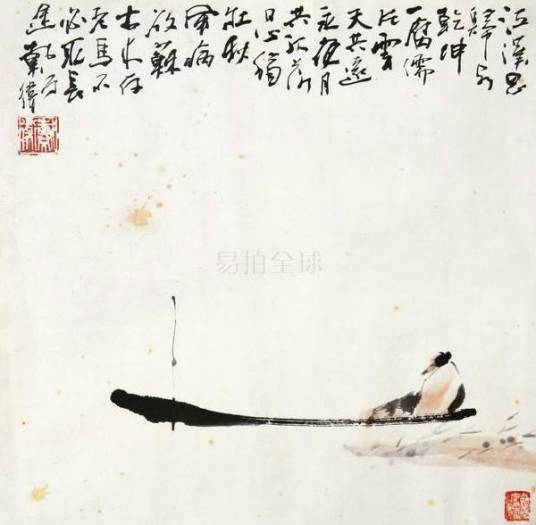 江漢思
歸客
乾坤
一腐儒
片雲
天共遠
永夜月
共孤落
日心猶
壯秋
風病
欲蘇
古來存
老馬不
必取長
途
戴衛
易拍全球